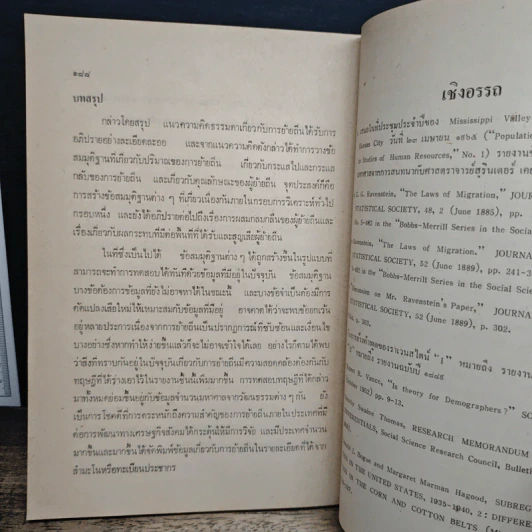 ๑๘๘
บทสรุป
กล่าวโดยสรุป แนวความคิดธรรมดาเกี่ยวกับการย้ายถิ่นได้รับการ
อภิปรายอย่างละเอียดละออ และจากแนวความคิดดังกล่าวได้ทำการวาง
สมมุติฐานที่เกี่ยวกับปริมาณของการย้ายถิ่น เกี่ยวกับกระแสไปและกระแส
กลับของการย้ายถิ่น และเกี่ยวกับคุณลักษณะของผู้ย้ายถิ่น จุดประสงค์ก็คือ
การสร้างข้อสมมุติฐานต่าง ๆ ที่เกี่ยวเนื่องกันภายในกรอบการวิเคราะห์ทั่วไป
กรอบหนึ่ง และยังได้อภิปรายต่อไปถึงเรื่องการผสมกลมกลืนของผู้ย้ายถิ่นและ
เรื่องเกี่ยวกับผลกระทบที่มีต่อพื้นที่ที่ได้รับและสูญเสียผู้ย้ายถิ่น
ในที่ซึ่งเป็นไปได้ ข้อสมมุติฐานต่าง ๆ ได้ถูกสร้างขึ้นในรูปแบบที่
สามารถจะทำการทดสอบได้ทันทีด้วยข้อมูลที่มีอยู่ในปัจจุบัน ข้อสมมุติฐาน
บางข้อต้องการข้อมูลที่ยังไม่อาจหาได้ในขณะนี้ และบางข้อจำเป็นต้องมีการ
ดัดแปลงเสียใหม่ให้เหมาะสมกับข้อมูลที่มีอยู่ อาจคาดได้ว่าจะพบข้อยกเว้น
อยู่หลายประการเนื่องจากการย้ายถิ่นเป็นปรากฏการณ์ที่ซับซ้อนและเงื่อนไข
บางอย่างซึ่งหากทำให้ง่ายขึ้นแล้วก็จะไม่อาจเข้าใจได้เลย อย่างไรก็ตามได้พบ
ว่าสิ่งที่ทราบกันอยู่ในปัจจุบันเกี่ยวกับการย้ายถิ่นมีความสอดคล้องต้องกันกับ
ทฤษฎีที่ได้ร่างเอาไว้ในรายงานชิ้นนี้เพิ่มมากขึ้น การทดสอบทฤษฎีที่ได้กล่าว
มาทั้งหมดย่อมขึ้นอยู่กับข้อมูลจำนวนมหาศาลจากวัฒนธรรมต่าง ๆ กัน ยังคง
เป็นการโชคดีที่การตระหนักถึงความสำคัญของการย้ายถิ่นภายในประเทศที่มี
ต่อการพัฒนาทางเศรษฐกิจสังคมได้กระตุ้นให้มีการวิจัย และมีประเทศจำนวน
มากขึ้นและมากขึ้นได้จัดพิมพ์ข้อมูลเกี่ยวกับการย้ายถิ่นในรายละเอียดที่ได้จาก
สำมะโนหรือทะเบียนประชากร
เชิงอรรถ
Mississippi Valley
Kansas City วันที่ ๒๓ เมษายน ๑๙๖๕ ("Population
Studies of Human Resources," No. 1) รายงานของ
E. G. Ravenstein, "The Laws of Migration," JOUR
STATISTICAL SOCIETY, 48, 2 (June 1885), pp.
in the "Bobbs-Merrill Series in the Social
"The Laws of Migration," JOURNA
STATISTICAL SOCIETY, 52 (June 1889), pp. 241-3
in the "Bobbs-Merrill Series in the Social Scien
on Mr. Ravenstein's Paper," JOURNA
STATISTICAL SOCIETY, 52 (June 1889), p. 302.
p. 305.
หมายถึง รายงาน
B. Vance, "Is theory for Demographers?" SOC
pp. 9-13.
Swaine Thomas, RESEARCH MEMORANDUM
DIFFERENTIALS, Social Science Research Council, Bulletin
J. Bogue and Margaret Marman Hagood, SUBREG
IN THE UNITED STATES, 1935-1940. 2 : DIFFERE
IN THE CORN AND COTTON BELTS